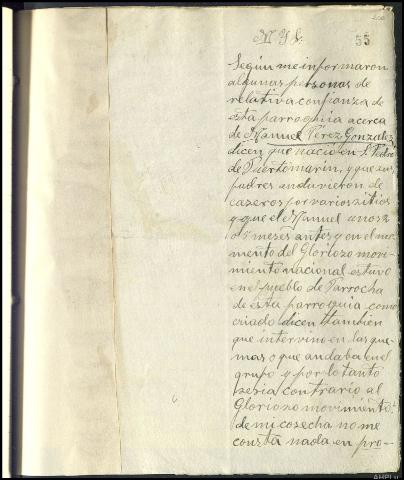 M. Y. S.
55
Segun me informaron
algunas personas de
relativa confianza de
esta parroquia acerca
de Manuel Pérez Gonzalez
dicen que nació en S. Pedro
de Puertomarin, y que sus
padres anduvieron de
cazeros por varios sitios
y que el Manuel unos 2
o 15 meses antes y en el mo-
mento del Gloriozo movi-
miento nacional estuvo
en el pueblo de Parrocha
de esta parroquia como
criado dicen tambien
que intervino en las que-
mas o que andaba en el
grupo y por lo tanto
zeria contrario al
Gloriozo movimiento.
de mi cosecha no me
consta nada en pro-
AHPLu